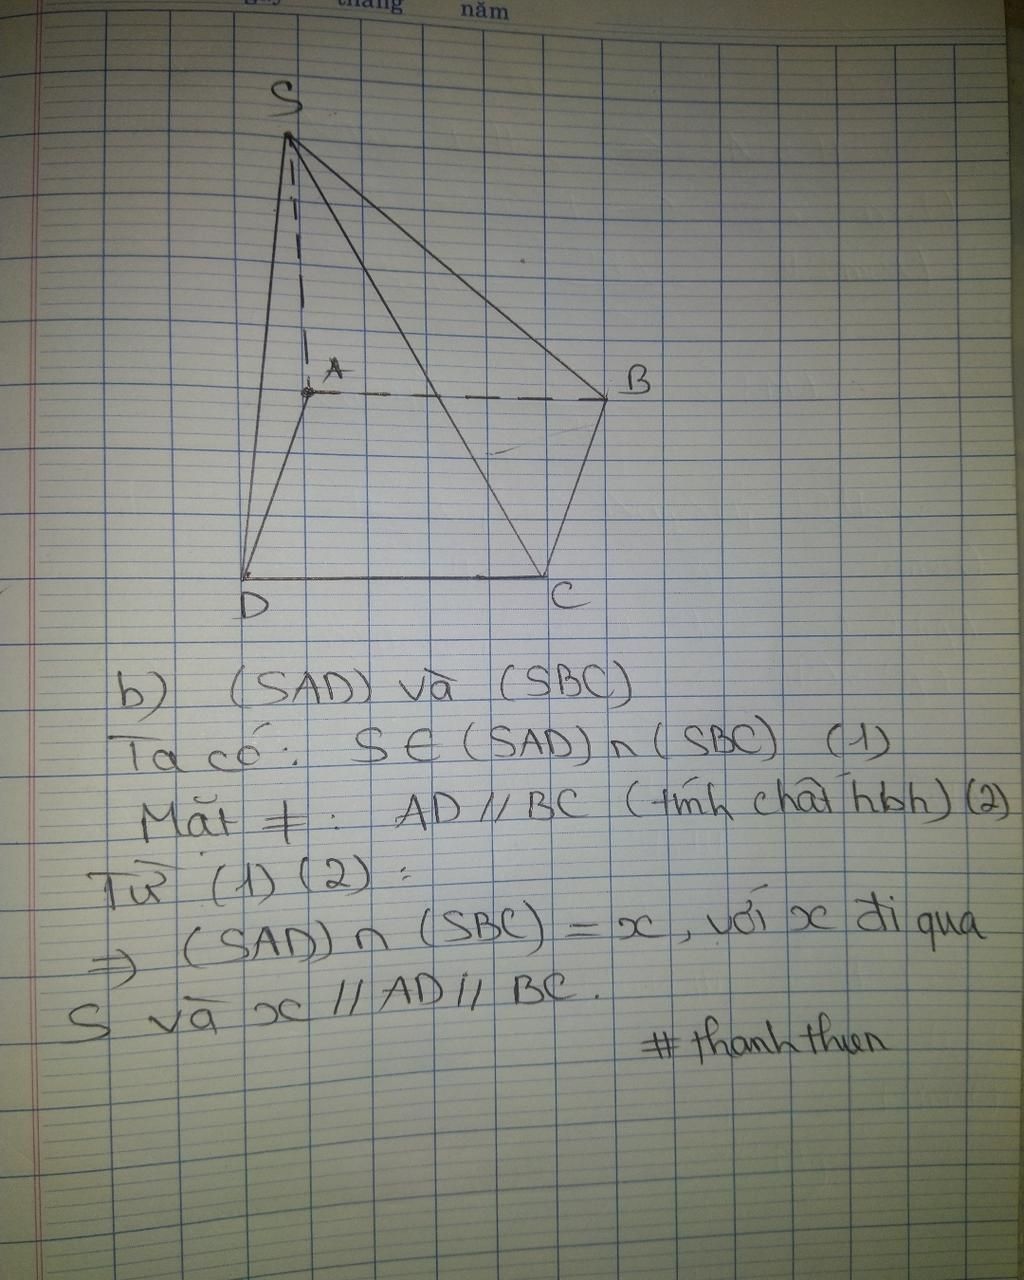 tháng năm
S
A
B
D
C
b) (SAD) và (SBC)
Ta có: S ∈ (SAD) ∩ (SBC) (1)
Mặt ≠: AD // BC (tính chất hbh) (2)
Từ (1) (2) :
⇒ (SAD) ∩ (SBC) = x, với x đi qua
S và x // AD // BC.
# thanhthuen